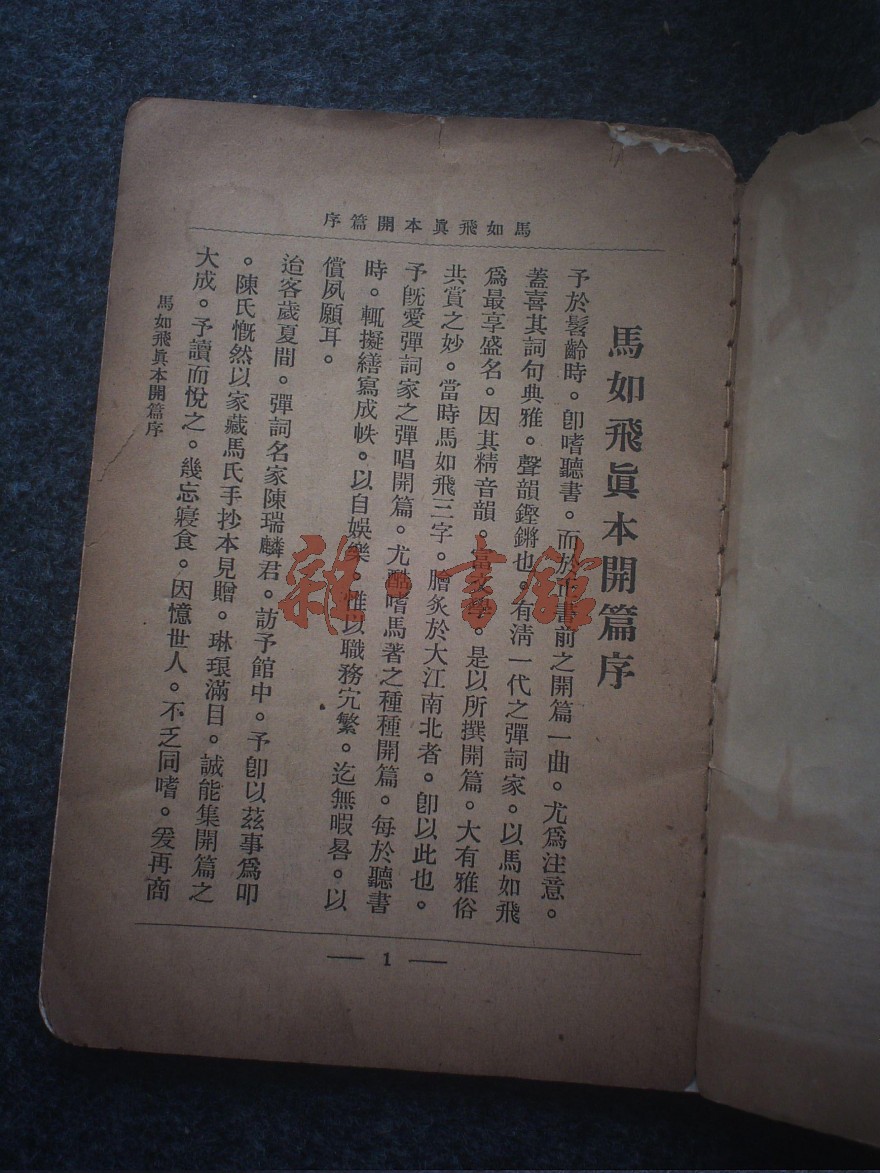 馬如飛眞本開篇序
馬如飛眞本開篇序
予於髫齡時。卽嗜聽書。而於正書前之開篇一曲。尤爲注意。
蓋喜其詞句典雅。聲韻鏗鏘也。有淸一代之彈詞家。以馬如飛
爲最享盛名。因其精音韻。富文學。是以所撰開篇。大有雅俗
共賞之妙。當時馬如飛三字。膾炙於大江南北者。卽以此也。
予旣愛彈詞家之彈唱開篇。尤酷嗜馬著之種種開篇。每於聽書
時。輒擬繕寫成帙。以自娛樂。惟以職務宂繁。迄無暇晷。以
償夙願耳。
迨客歲夏間。彈詞名家陳瑞麟君。訪予館中。予卽以茲事爲叩
。陳氏慨然以家藏馬氏手抄本見贈。琳琅滿目。誠能集開篇之
大成。予讀而悅之。幾忘寢食。因憶世人。不乏同嗜。爰再商
馬如飛眞本開篇序
— 1 —
雜·書館